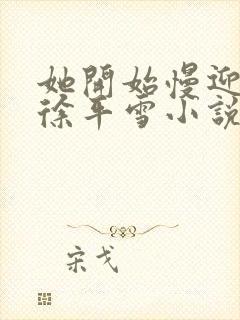 她開始慢迎
徐平雪小說
宋戈